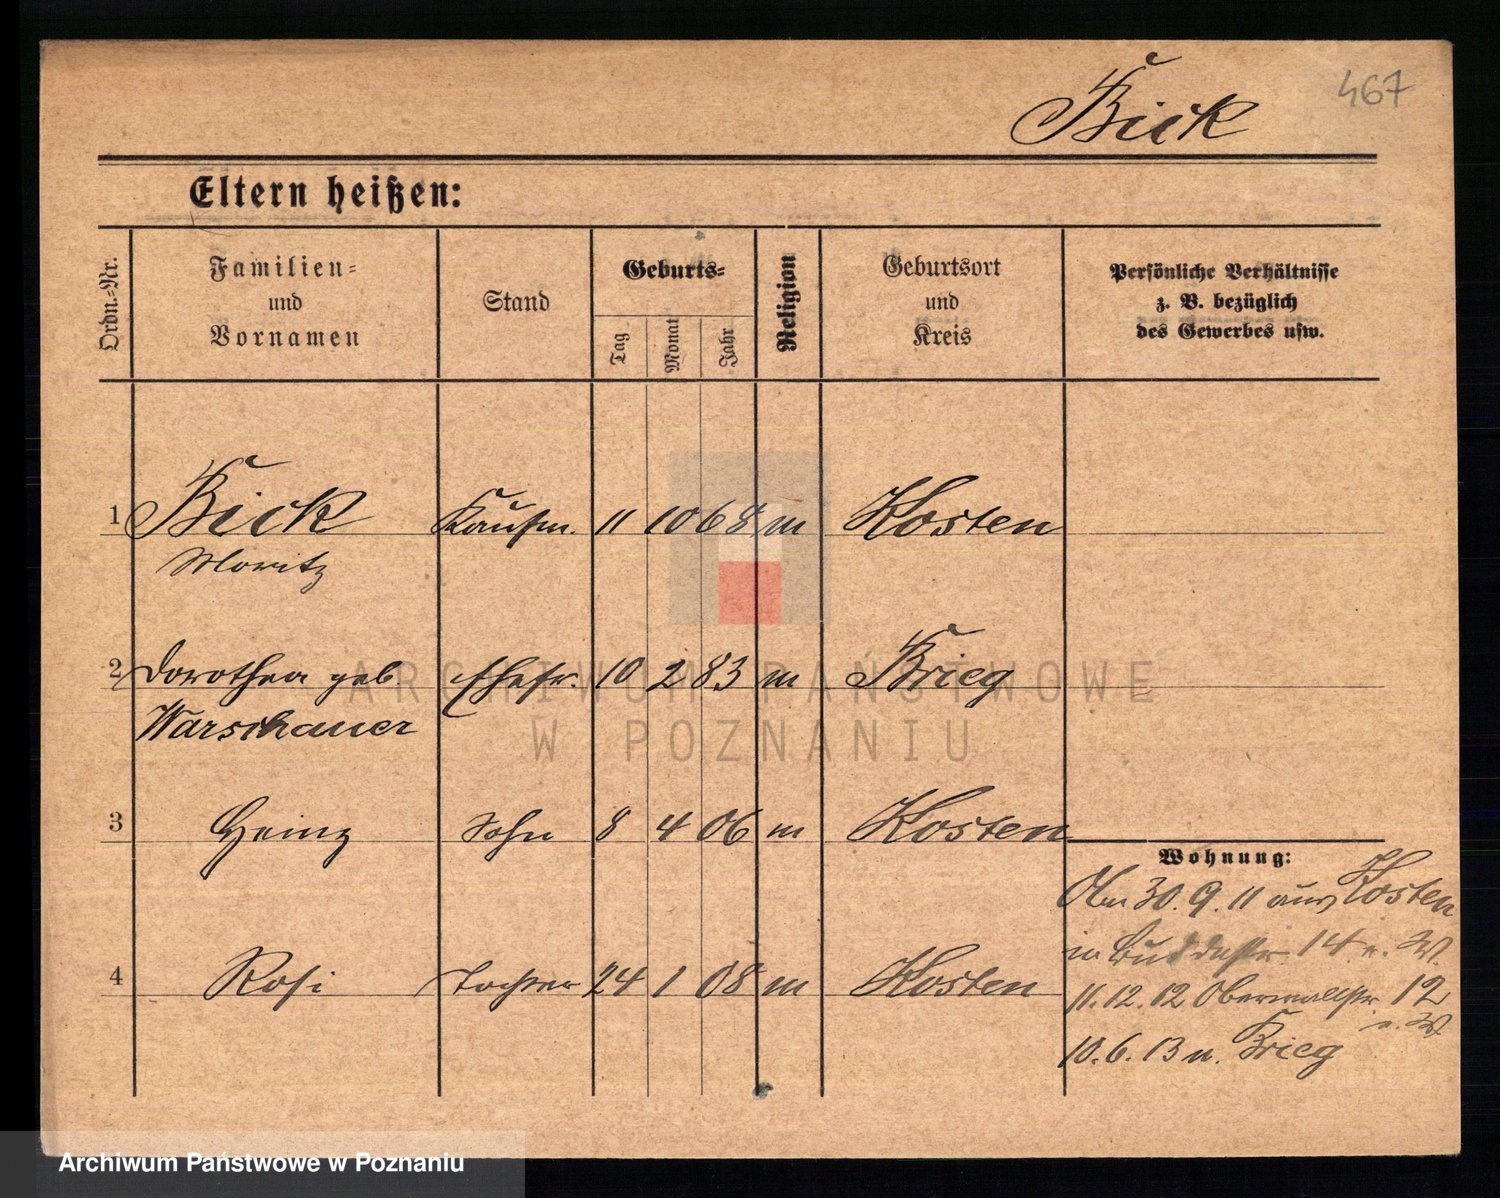 Bick
467
Eltern heißen:
Ordn.-Nr.
Familien-
und
Vornamen
Stand
Geburts-
Tag
Monat
Jahr
Religion
Geburtsort
und
Kreis
Persönliche Verhältnisse
z. B. bezüglich
des Gewerbes usw.
1 Bick Kaufm. 11 10 68 m Kosten
Moritz
2 Dorothea geb Ehefr. 10 2 83 m Brieg
Warschauer
3 Heinz Sohn 8 4 06 m Kosten
4 Rosi Tochter 24 1 08 m Kosten
Wohnung:
30.9.11 aus Kosten
in 14 e. W.
11.12.12 Oberwallstr 12
e. W.
10.6.13 n. Brieg
ARCHIWUM PAŃSTWOWE
W POZNANIU
Archiwum Państwowe w Poznaniu